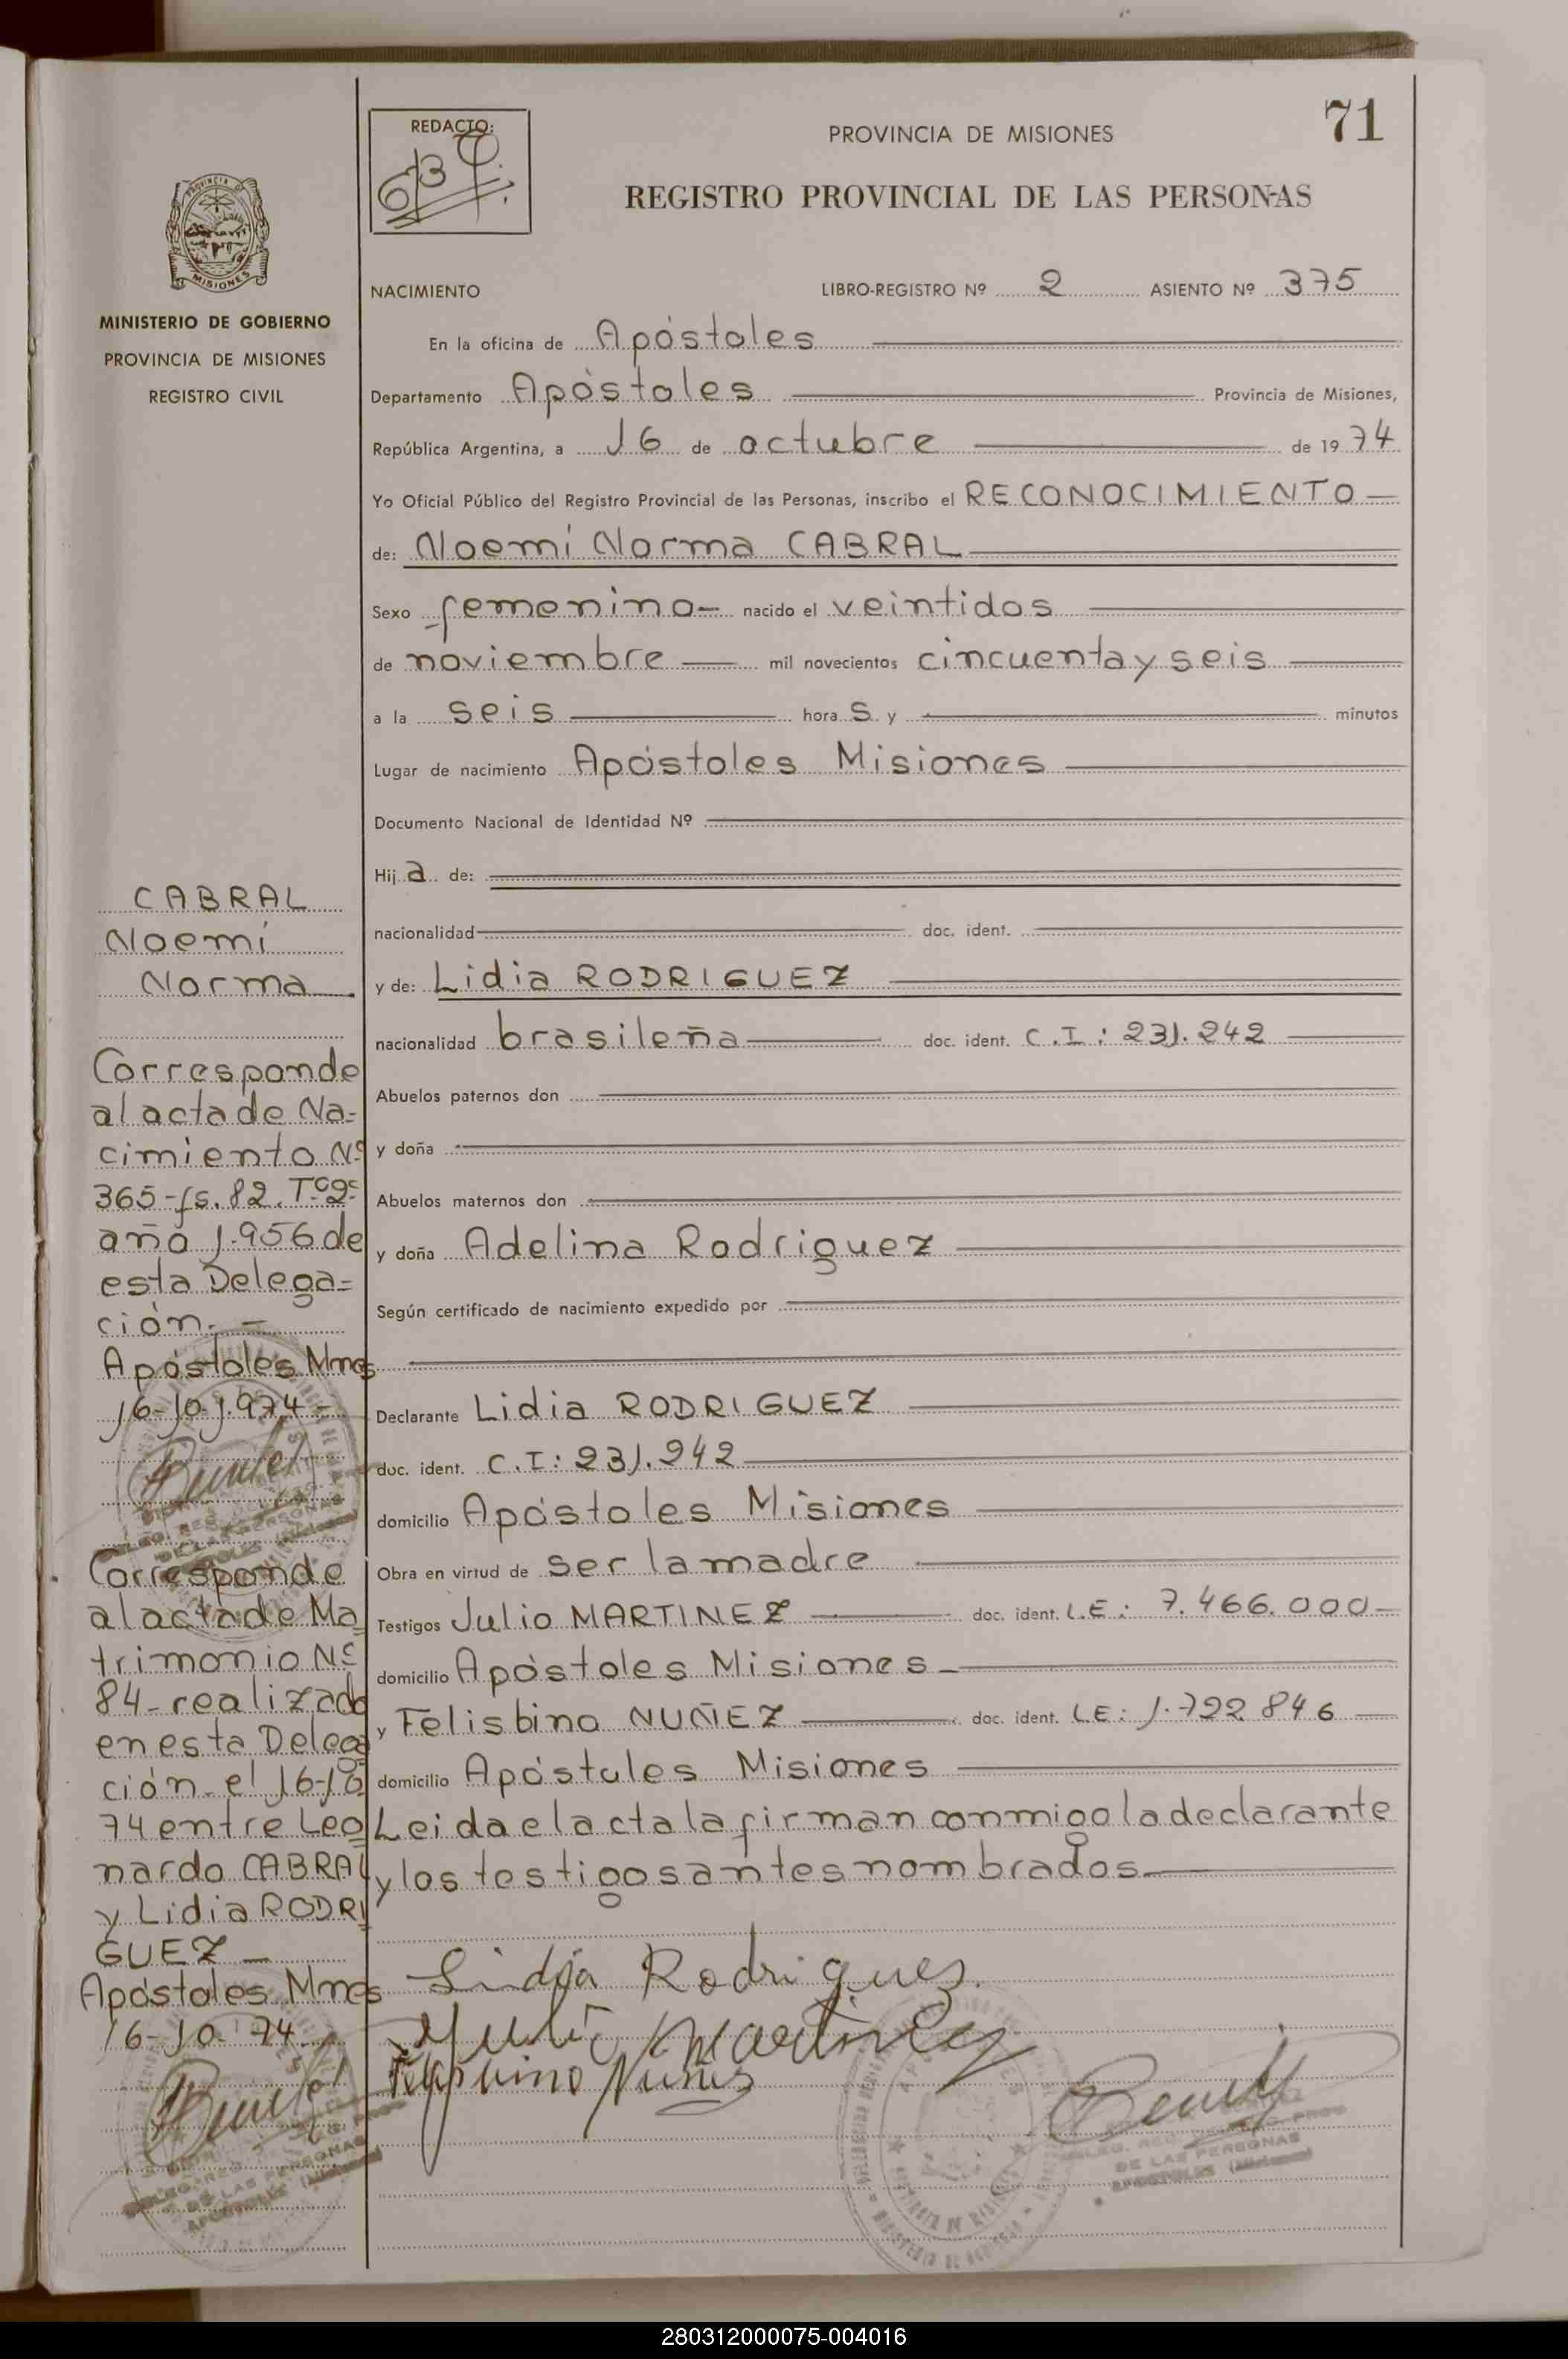 71
REDACTO:
PROVINCIA DE MISIONES
REGISTRO PROVINCIAL DE LAS PERSONAS
MISIONES
MINISTERIO DE GOBIERNO
PROVINCIA DE MISIONES
REGISTRO CIVIL
CABRAL
Noemí
Norma
Corresponde
al acta de Na=
cimiento Nº
365-fs.82.Tº2º
año 1.956 de
esta Delega=
ción.-
Apóstoles Mnes
16-10-1.974-
Corresponde
al acta de Ma
trimonio Nº
84-realizado
en esta Delega
ción el 16-10
74 entre Leo
nardo CABRAL
y Lidia RODRI
GUEZ-
Apóstoles Mnes
16-10-74
NACIMIENTO LIBRO-REGISTRO Nº 2 ASIENTO Nº 375
En la oficina de Apóstoles
Departamento Apóstoles Provincia de Misiones,
República Argentina, a 16 de octubre de 1974
Yo Oficial Público del Registro Provincial de las Personas, inscribo el RECONOCIMIENTO
de: Noemí Norma CABRAL
Sexo femenino nacido el veintidos
de noviembre mil novecientos cincuenta y seis
a la seis hora s y minutos
Lugar de nacimiento Apóstoles Misiones
Documento Nacional de Identidad Nº
Hij a de:
nacionalidad doc. ident.
y de: Lidia RODRIGUEZ
nacionalidad brasileña doc. ident. C.I: 231.242
Abuelos paternos don
y doña
Abuelos maternos don
y doña Adelina Rodriguez
Según certificado de nacimiento expedido por
Declarante Lidia RODRIGUEZ
doc. ident. C.I: 231.242
domicilio Apóstoles Misiones
Obra en virtud de ser la madre
Testigos Julio MARTINEZ doc. ident. L.E: 7.466.000
domicilio Apóstoles Misiones
y Felisbino NUÑEZ doc. ident. L.E: 1.722.846
domicilio Apóstoles Misiones
Leida el acta la firman conmigo la declarante
y los testigos antes nombrados.
Lidia Rodriguez.
Julio Martinez
Felisbino Nuñes
DE LAS PERSONAS
280312000075-004016